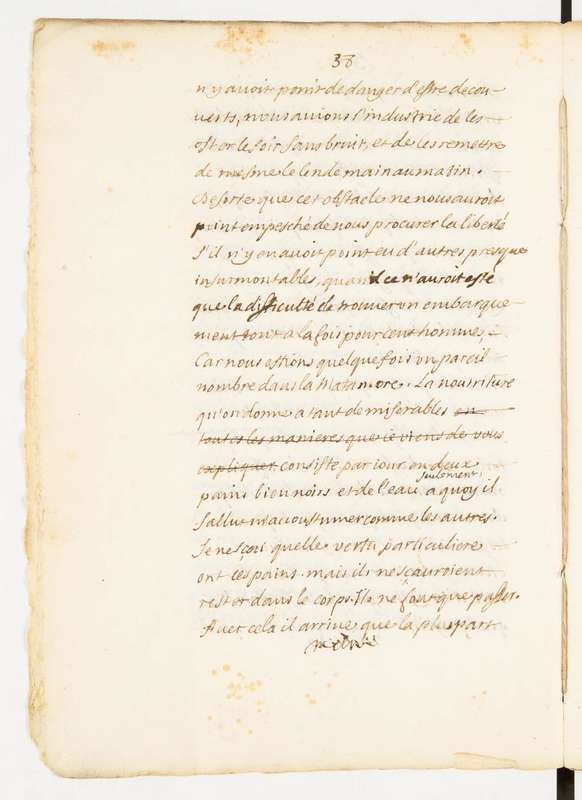 38
n'y avoit point de danger d'estre decou-
verts, nous avions l'industrie de les
oster le soir sans bruit, et de les remettre
de mesme le lendemain au matin.
Desorte que cet obstacle ne nous auroit
point empesché de nous procurer la liberté
s'il n'y en avoit point eu d'autres presque
insurmontables, quand ce n'auroit esté
que la difficulté de trouver un embarque-
ment tout a la fois pour cent hommes,
Car nous estions quelque fois un pareil
nombre dans la Matamore. La nourriture
qu'on donne a tant de miserables en
toutes les manieres que ie viens de vous
expliquer consiste par iour en deux
pains bien noirs et de l'eau seulement, a quoy il
fallut m'accoustumer comme les autres.
Je ne sçai quelle vertu particuliere
ont ces pains. mais ils ne sçauroient
rester dans le corps. Ils ne font que passer.
Avec cela il arrive que la pluspart